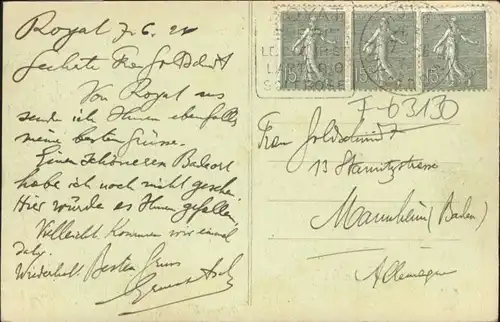 Royat 7.6.21
Geehrte Frau Goldschmidt
Von Royat aus
sende ich Ihnen ebenfalls
meine besten Grüsse.
Einen schöneren Badeort
habe ich noch nicht gesehen
Hier würde es Ihnen gefallen,
Vielleicht kommen wir einmal
Wiederholt Besten Gruss
F-63130
Frau Goldschmidt
13
Mannheim (Baden)
Allemagne